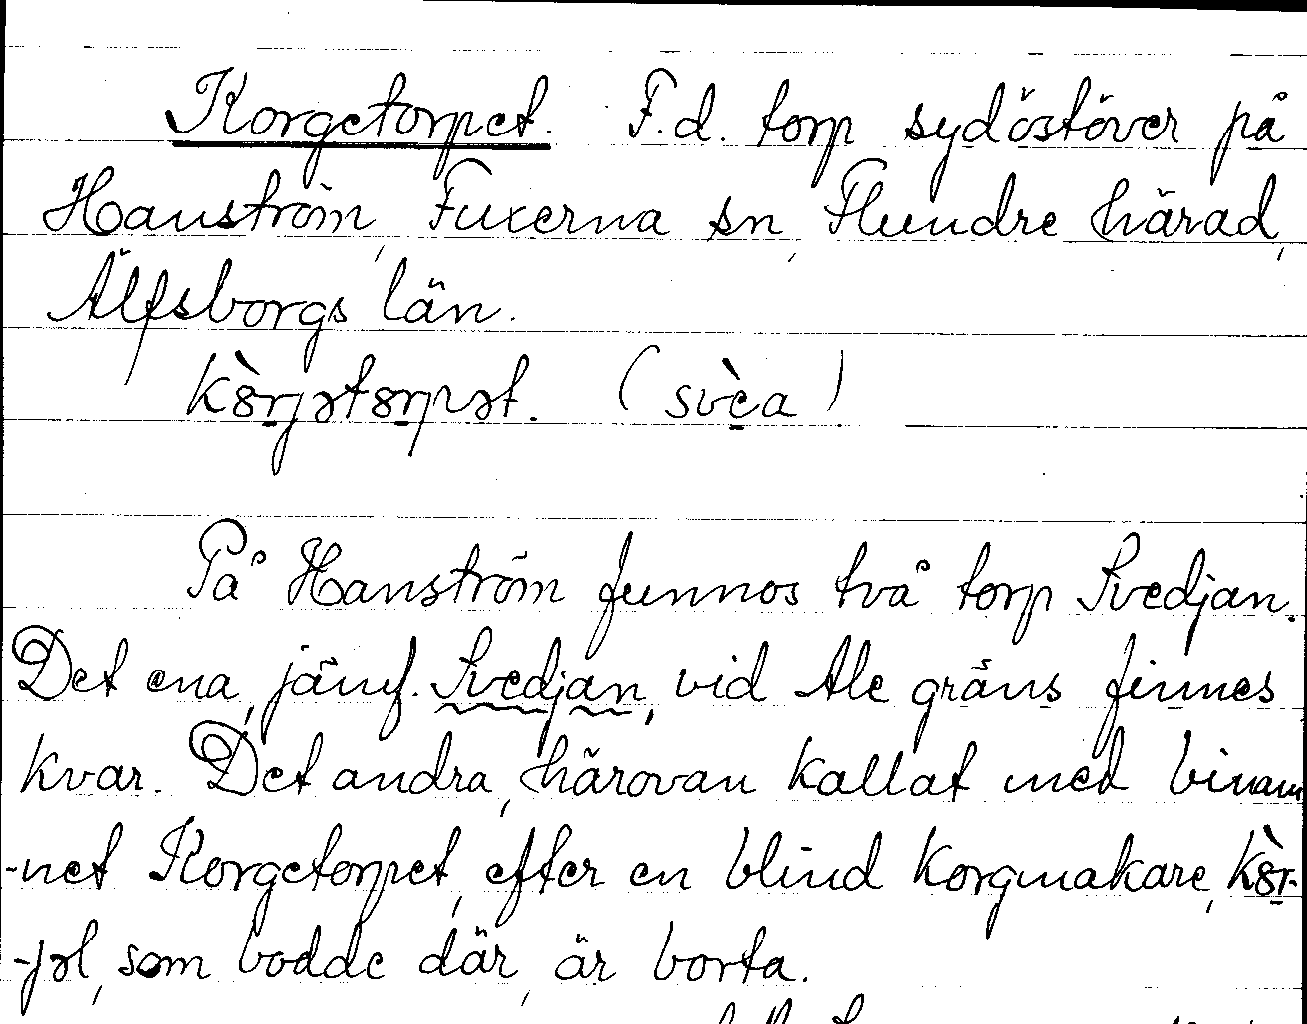 Korgetorpet. F.d. torp sydöstöver på
Hanström, Fuxerna sn, Flundre härad,
Älfsborgs län.
(svèa)
På Hanström funnos två torp Svedjan.
Det ena, jämf. Svedjan, vid Ale gräns finnes
kvar. Det andra, härovan kallat med binam-
-net Korgetorpet, efter en blind korgmakare,
som bodde där, är borta.